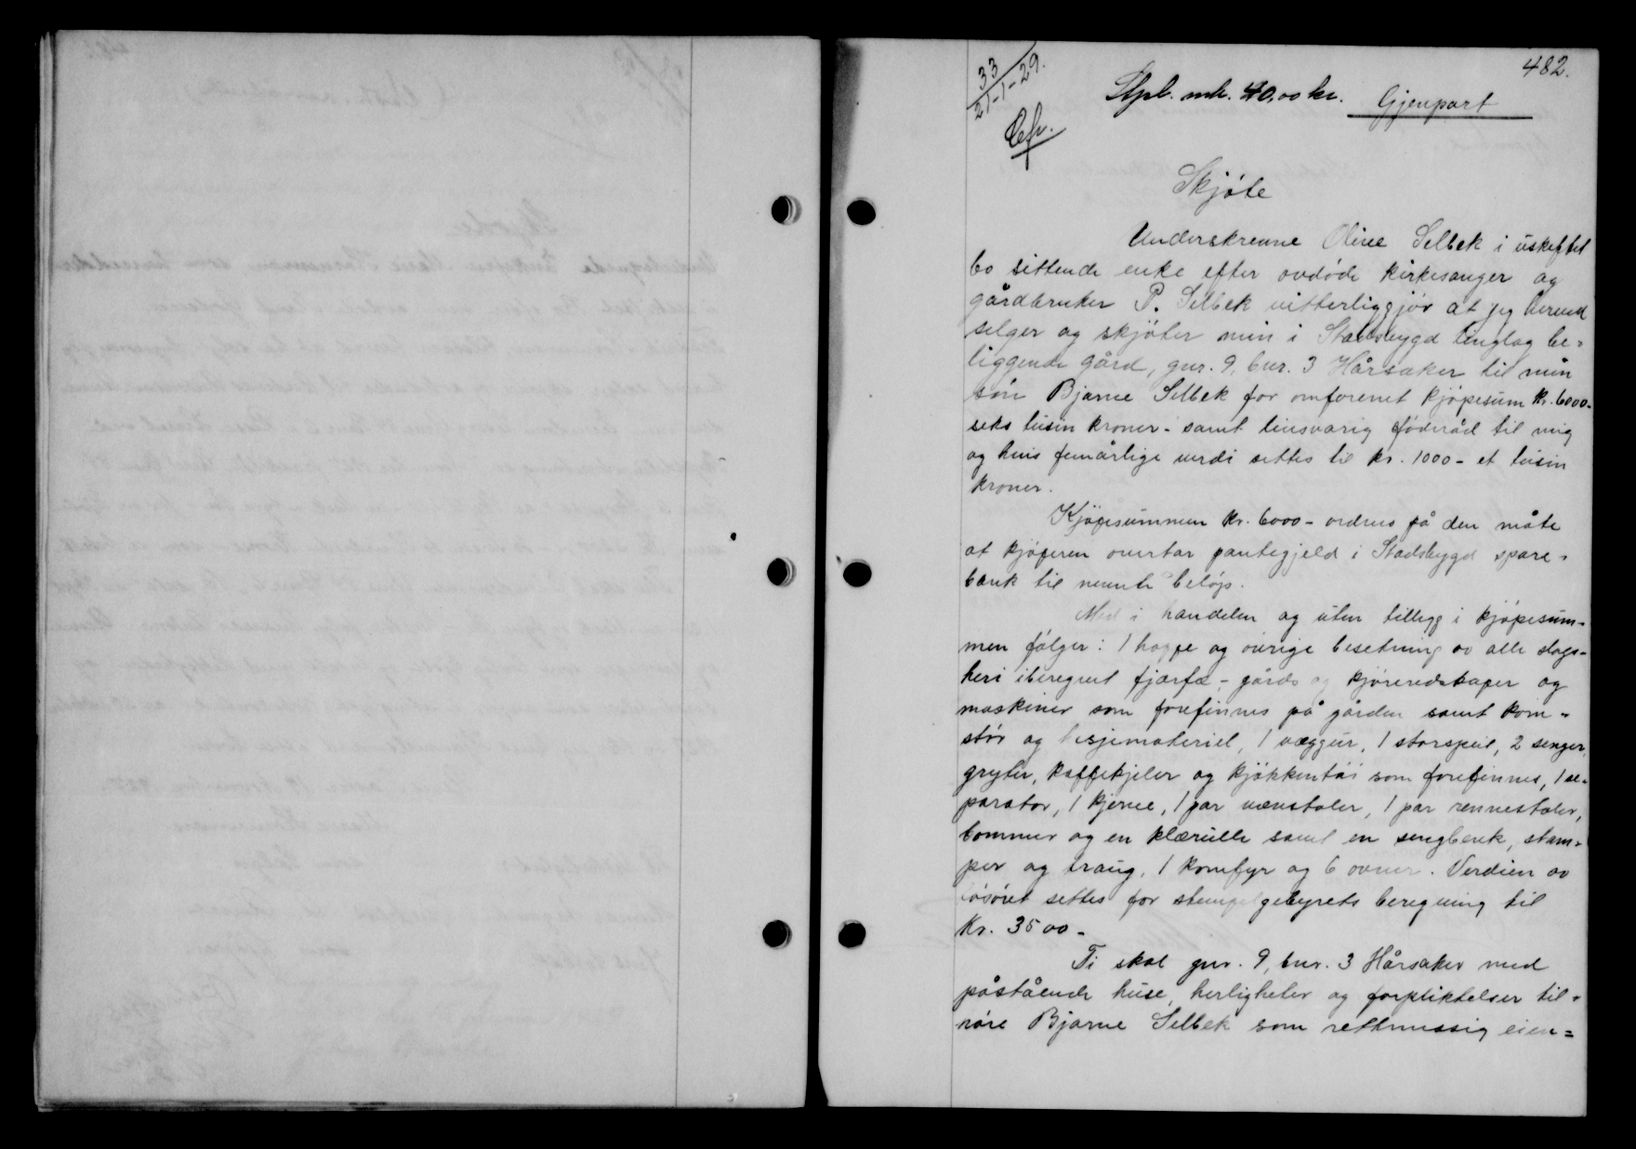 482.
33
21-1-29.
Stpl. mk. 40.00 kr. Gjenpart
Skjöte
Underskrevne Oline Selbek i uskiftet
bo sittende enke efter avdöde kirkesanger og
gårdbruker P. Selbek vitterliggjör at jeg herved
selger og skjöter min i Stadsbygd tinglag be=
liggende gård, gnr. 9, bnr. 3 Hårsaker til min
sön Bjarne Selbek for omforenet kjöpesum kr. 6000-
seks tusin kroner - samt livsvarig föderåd til mig
og hvis femårlige verdi settes til kr. 1000 - et tusin
kroner.
Kjöpesummen kr. 6000 - ordnes på den måte
at kjöperen overtar pantegjeld i Stadsbygd spare=
bank til nevnte belöp.
Med i handelen og uten tillegg i kjöpesum=
men fölger: 1 hoppe og övrige besetning av alle slags-
heri iberegnet fjærfæ - gårds og kjöreredskaper og
maskiner som forefinnes på gården samt korn=
stör og hesjemateriel, 1 væggur, 1 storspeil, 2 senger,
gryter, kaffekjeler og kjökkentöi som forefinnes, 1 se=
parator, 1 kjerne, 1 par vævstoler, 1 par rennestoler,
bommer og en klærulle samt en sengbenk, stam=
per og traug, 1 komfyr og 6 ovner. Verdien av
lösöret settes for stempelgebyrets beregning til
Kr. 3500 -
Ti skal gnr. 9, bnr. 3 Hårsaker med
påstående huse, herligheter og forpliktelser til=
höre Bjarne Selbek som rettmessig eien=